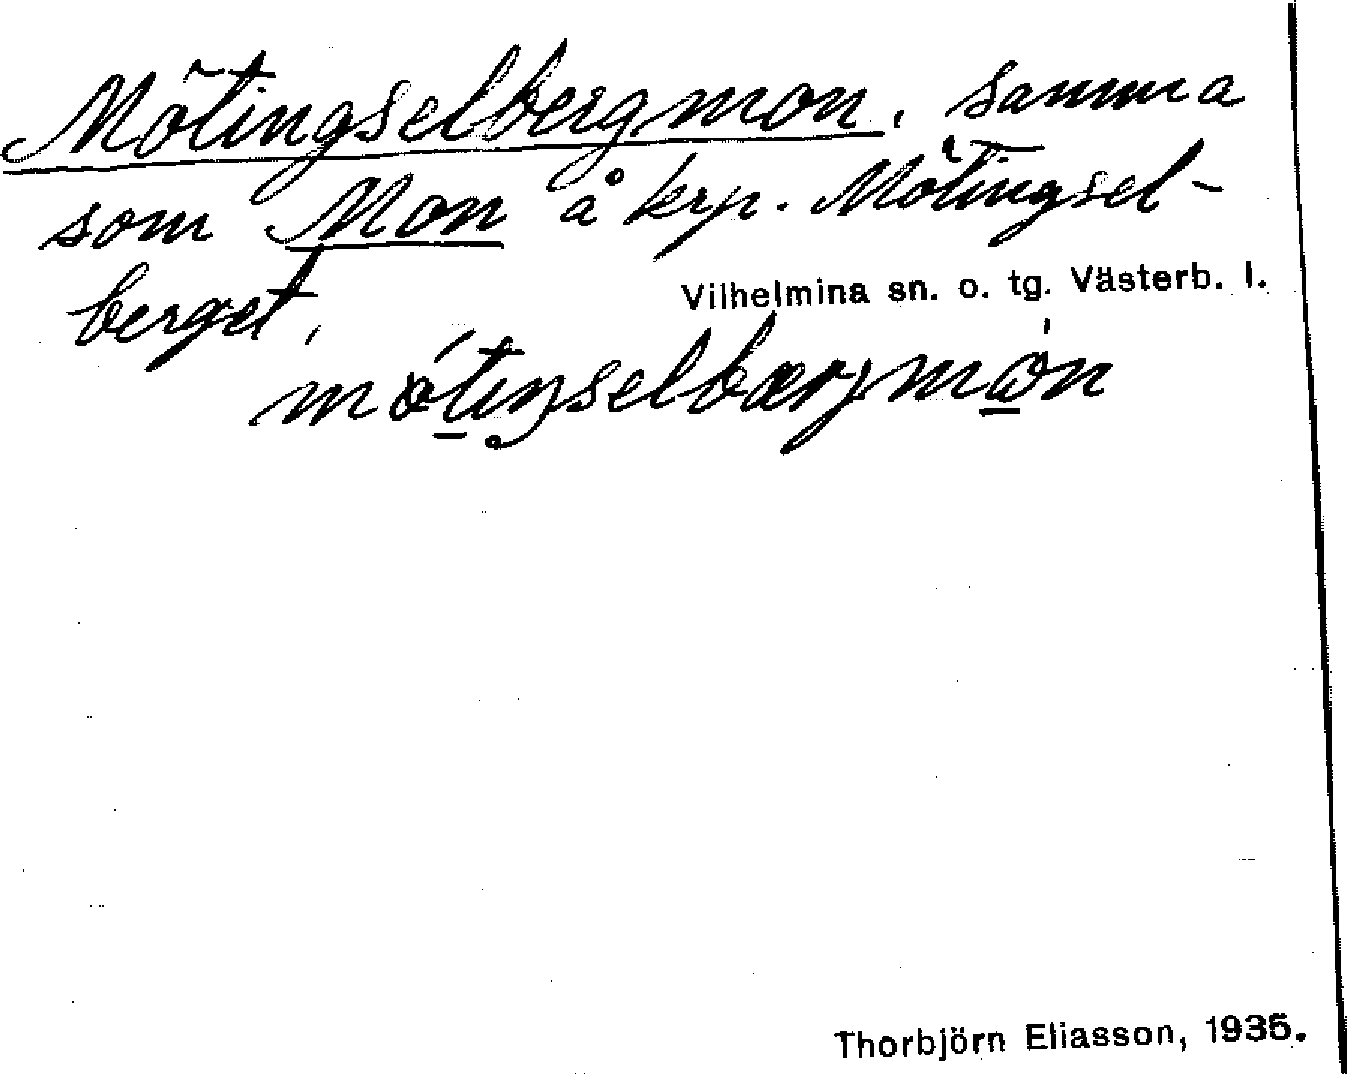 Mötingselbergmon, samma
som Mon å krp. Mötingsel-
berget,
Vilhelmina sn. o. tg. Västerb. l.
Thorbjörn Eliasson, 1935.